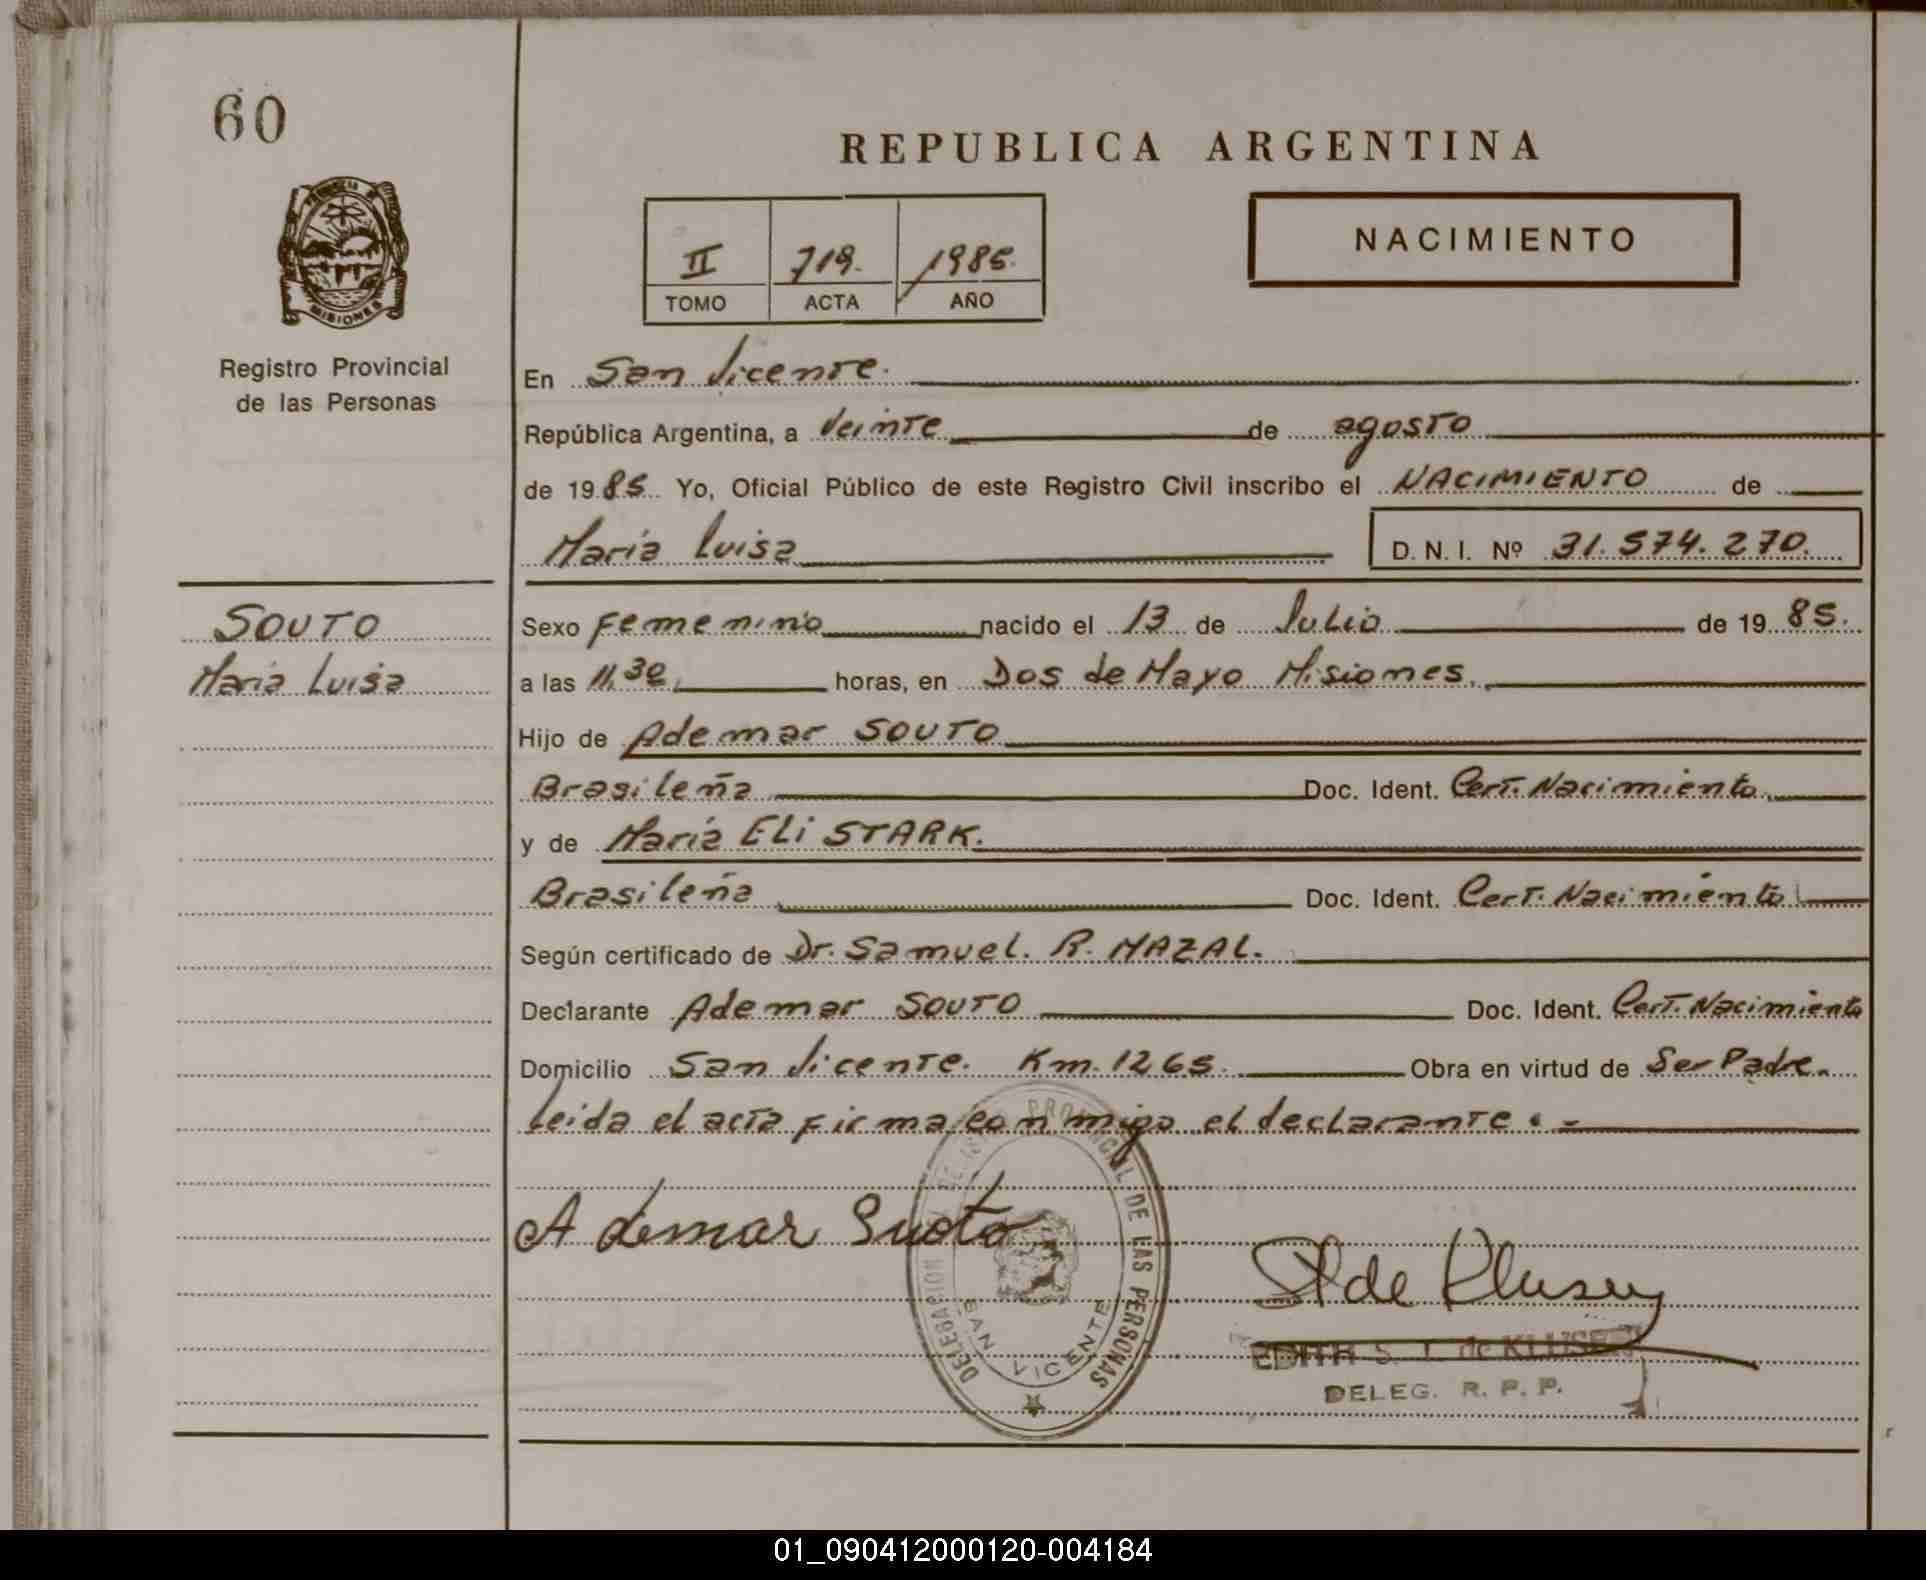 60
REPUBLICA ARGENTINA
PROVINCIA DE MISIONES
II 719. 1985.
TOMO ACTA AÑO
NACIMIENTO
Registro Provincial
de las Personas
En San Vicente.
República Argentina, a Veinte de agosto
de 1985 Yo, Oficial Público de este Registro Civil inscribo el NACIMIENTO de
María Luisa D. N. I. Nº 31.574.270.
SOUTO
María Luisa
Sexo Femenino nacido el 13 de Julio de 1985.
a las 11,30 horas, en Dos de Mayo Misiones.
Hijo de Ademar SOUTO
Brasileña Doc. Ident. Cert. Nacimiento
y de María Eli STARK.
Brasileña Doc. Ident. Cert. Nacimiento
Según certificado de Dr. Samuel. R. MAZAL.
Declarante Ademar SOUTO Doc. Ident. Cert. Nacimiento
Domicilio San Vicente. Km. 1265. Obra en virtud de Ser Padre.
Leida el acta firma conmigo el declarante.-
Ademar Suoto
DELEGACION REGISTRO PROVINCIAL DE LAS PERSONAS
SAN VICENTE
de Klusey
EDITH S. de
DELEG. R. P. P.
01_090412000120-004184